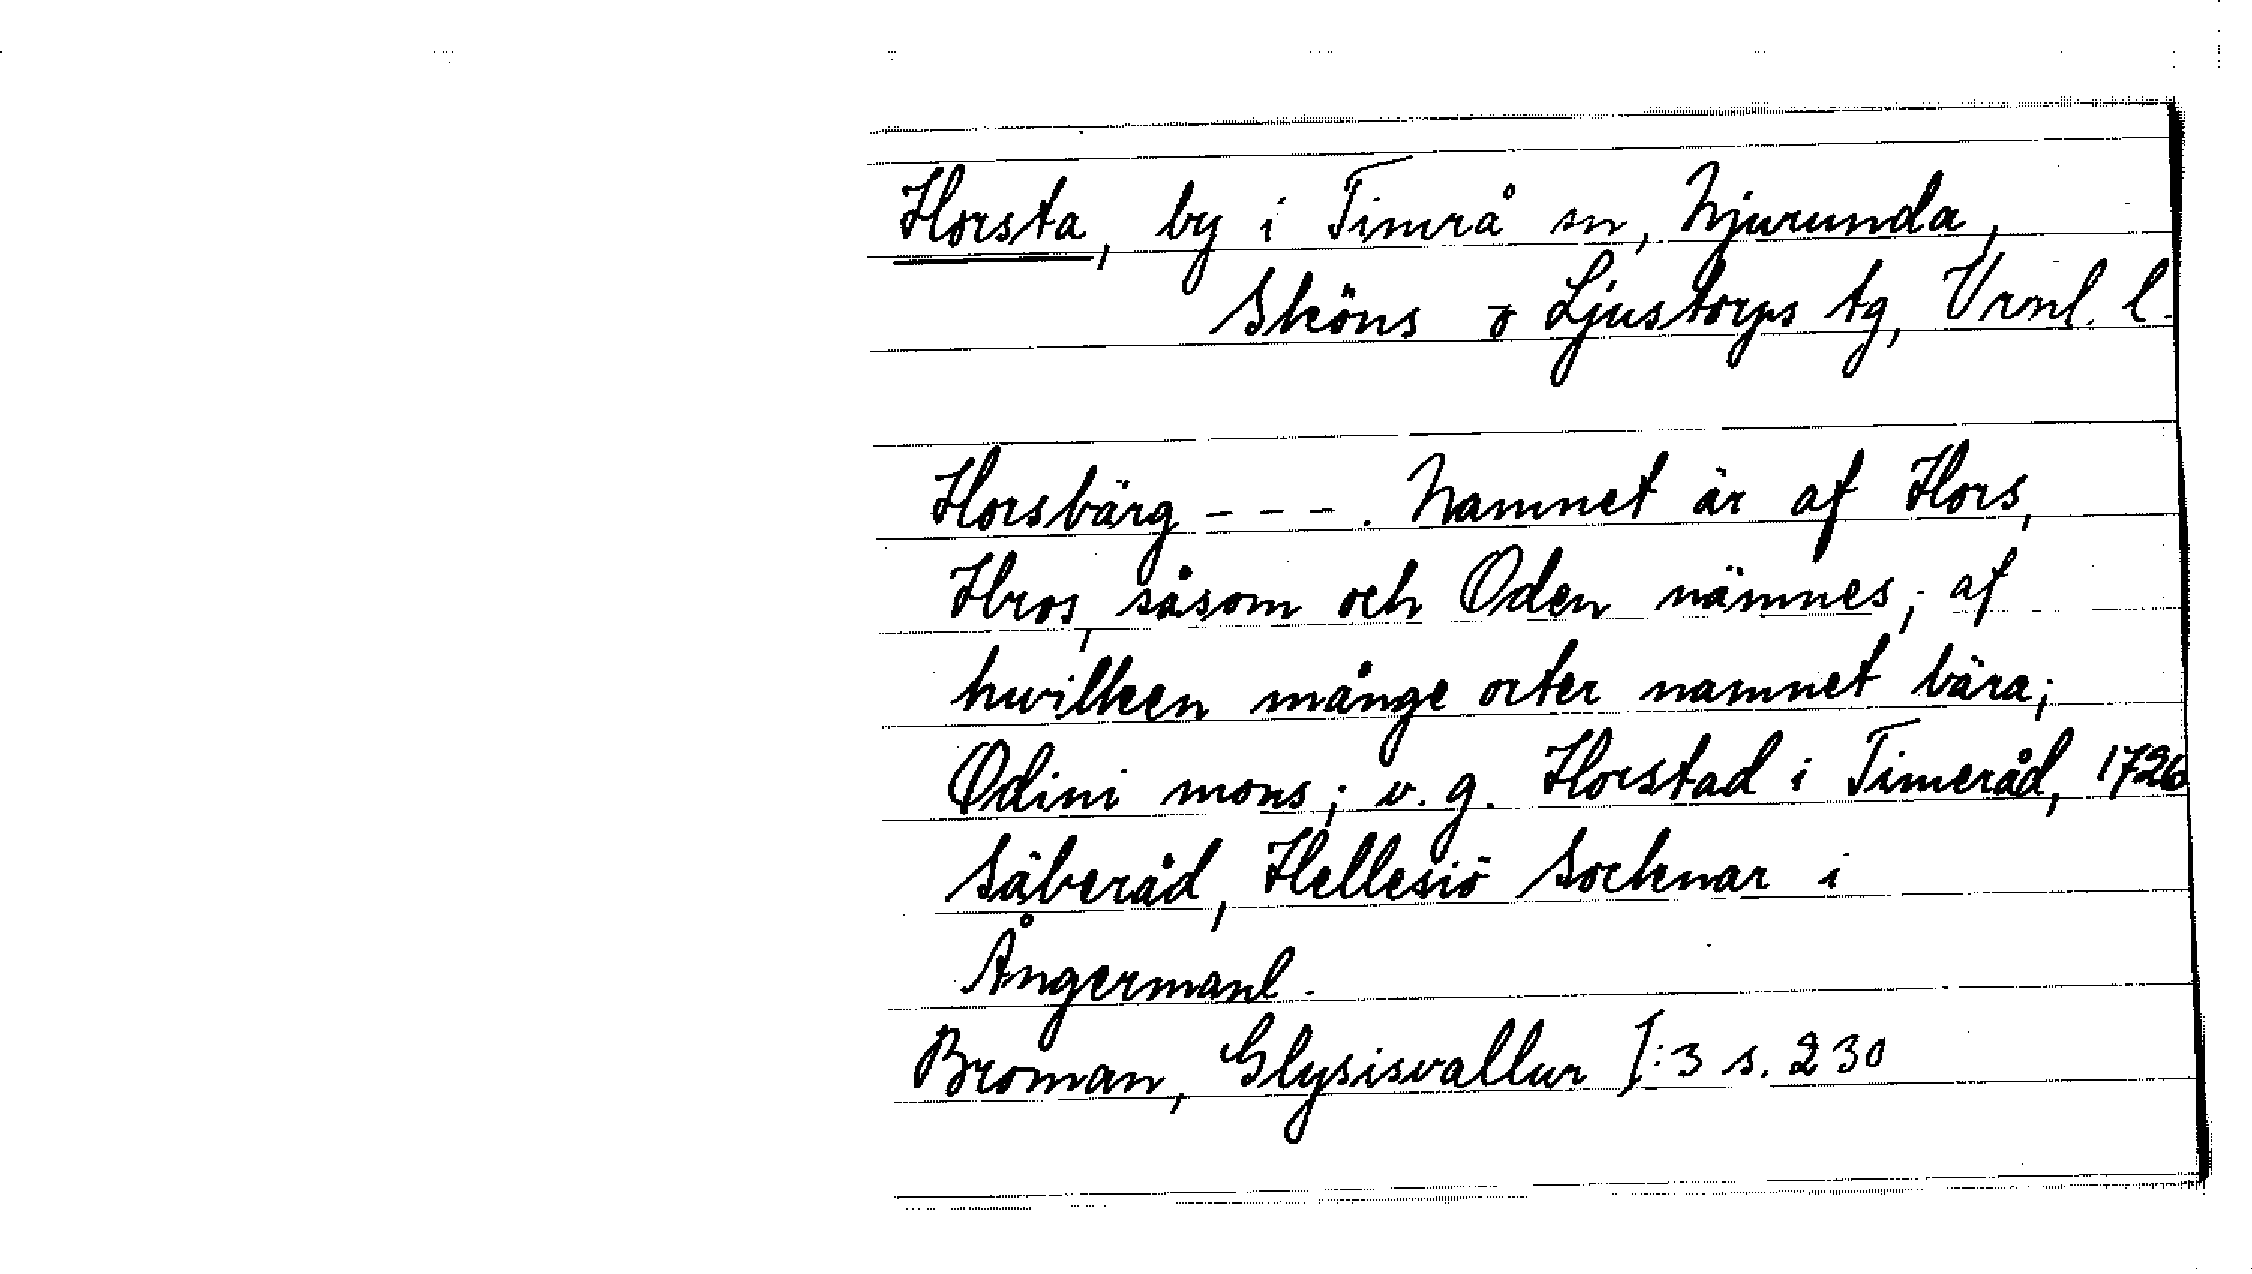 Horsta, by i Timrå sn, Njurunda,
Sköns o Ljustorps tg, Vrnl. l.
Horsbärg - - - . Namnet är af Hors,
Hros, såsom och Oden nämnes; af
hwilken månge orter namnet bära;
Odini mons; v. g. Horstad i Timeråd, 1726
Säberåd, Hellesiö Socknar i
Ångermanl.
Broman, Glysisvallur I:3 s. 230